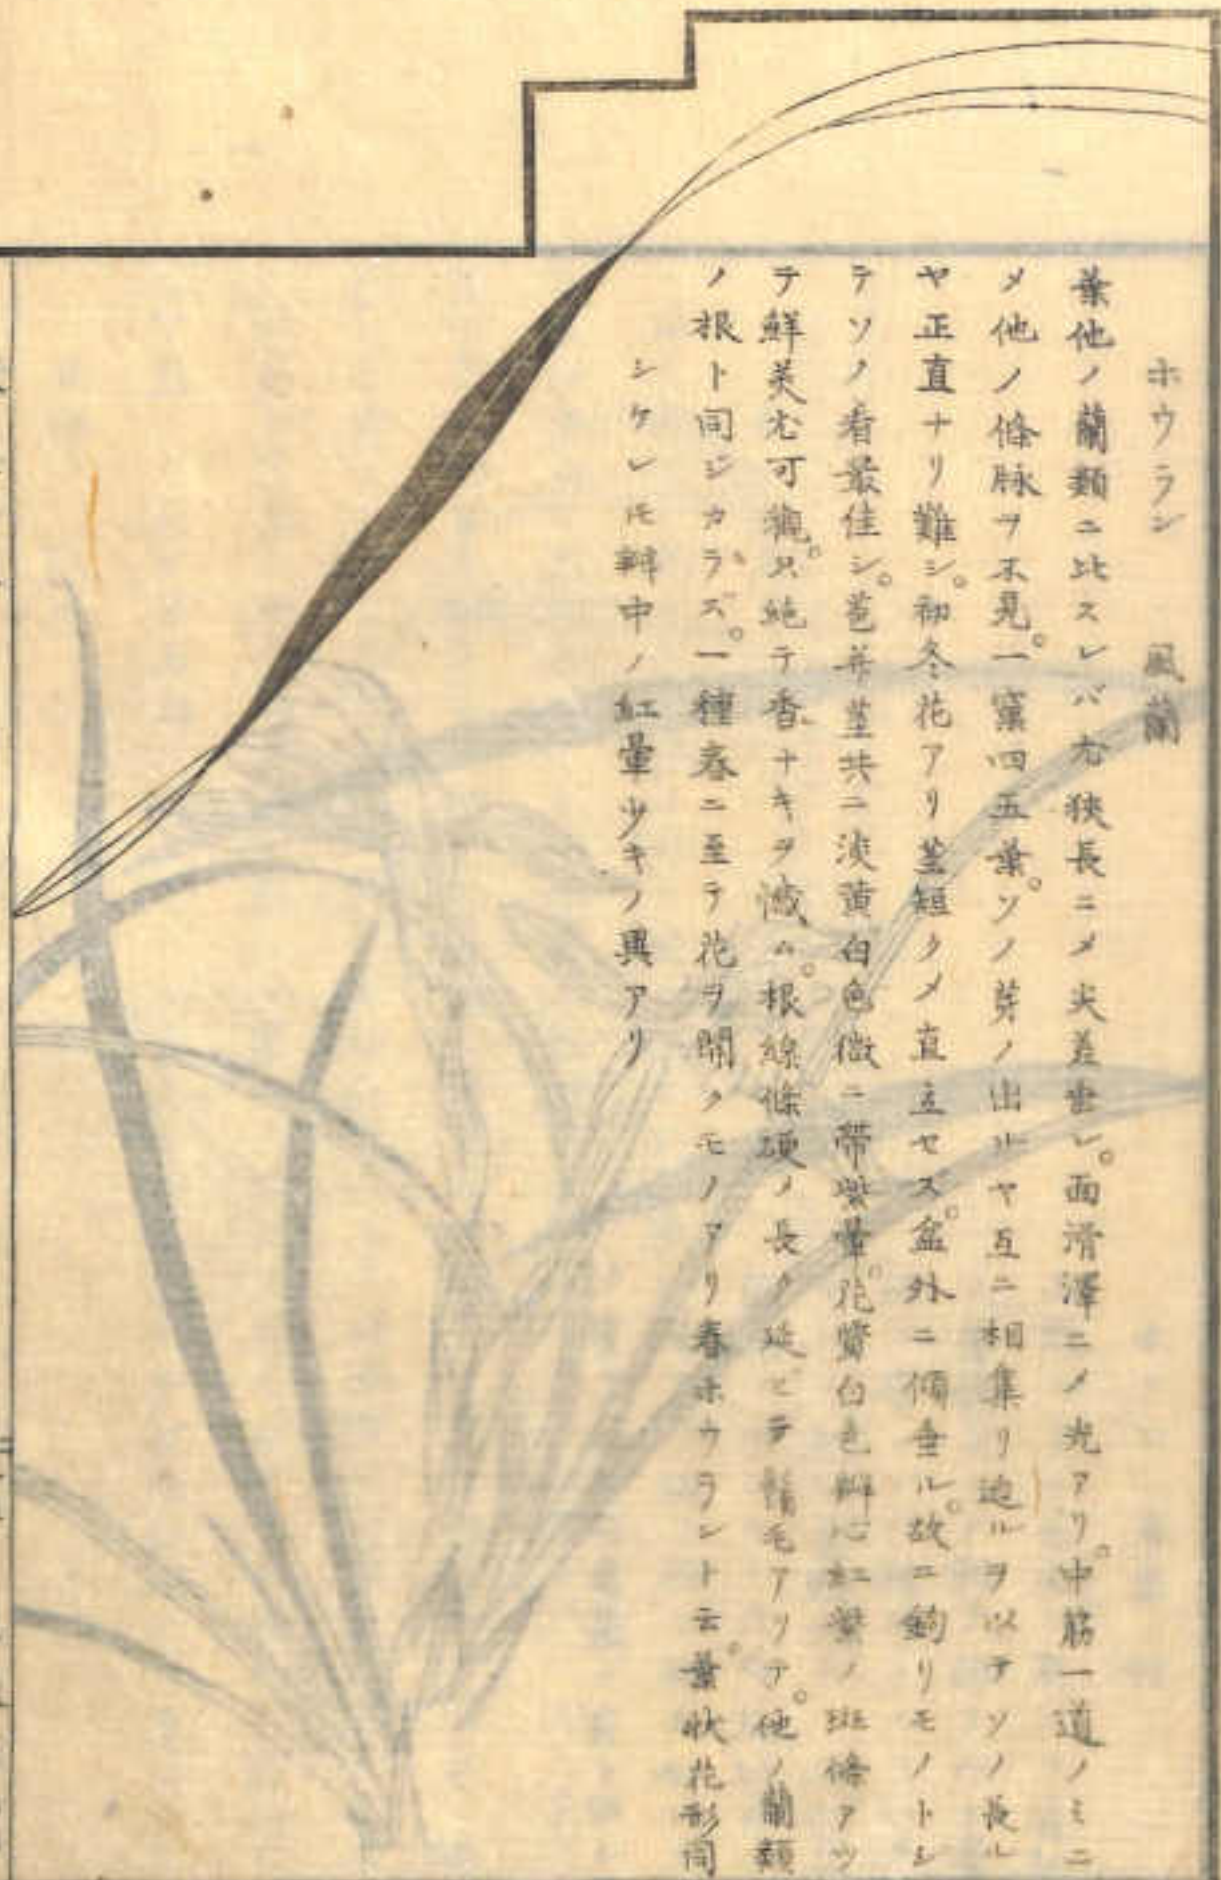 ホウラン　風蘭
葉他ノ蘭類ニ比スレバ尤狹長ニ〆尖差垂レ。面滑澤ニ〆光アリ。中筋一道ノミニ
〆他ノ條脉ヲ不見。一窠四五葉。ソノ芽ノ出ルヤ互ニ相集リ迫ルヲ以テソノ長ル
ヤ正直ナリ難シ。初冬花アリ莖短ク〆直立セス。盆外ニ傾垂ル。故ニ釣リモノトシ
テソノ看最佳シ。苞并莖共ニ淡黄白色微ニ帶紫暈。花瓣白色瓣心紅紫ノ斑條アツ
テ鮮美尤可観。只絶テ香ナキヲ憾ム。根線條硬〆長ク延ビテ鬚毛アリテ。他ノ蘭類
ノ根ト同ジカラズ。一種春ニ至テ花ヲ開クモノアリ春ホウラント云。葉状花形同
シケレ𪜈瓣中ノ紅暈少キノ異アリ